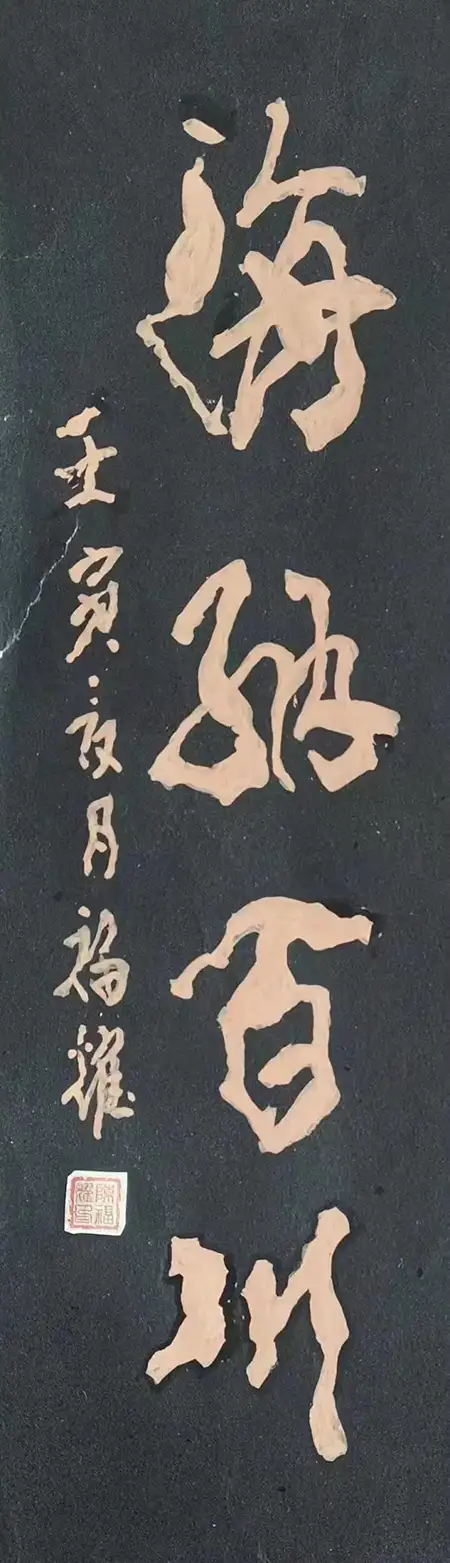 海納百川
壬寅夏月福耀
陳福耀印